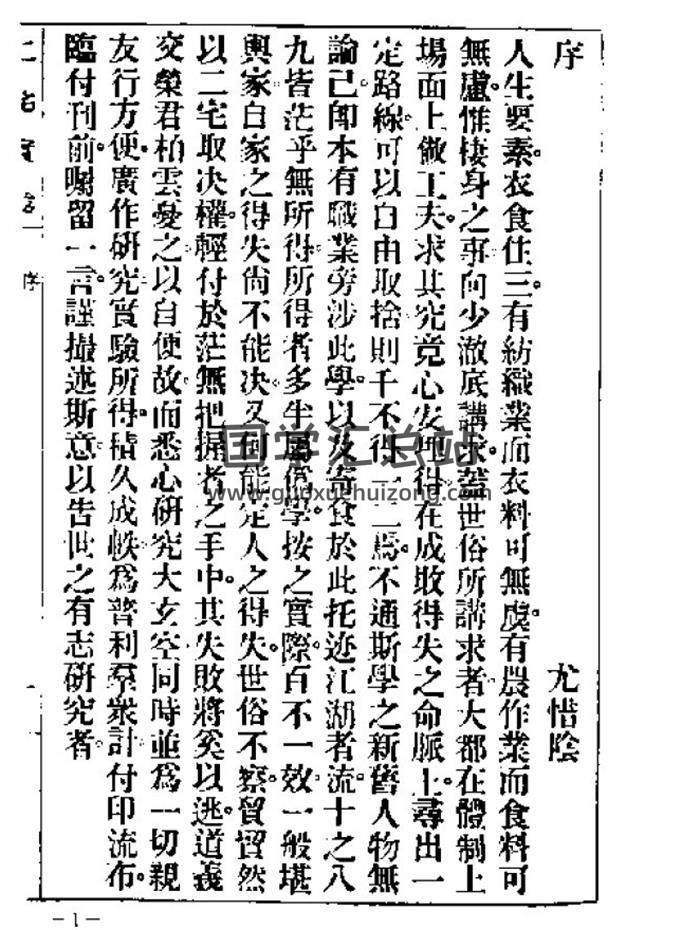 序
尤惜陰
人生要素。衣食住三。有紡織業而衣料可無虞。有農作業而食料可
無慮。惟棲身之事。向少澈底講求。蓋世俗所講求者。大都在體制上
場面上做工夫。求其究竟心安理得。在成敗得失之命脈上。尋出一
定路線。可以自由取捨。則千不得一二焉。不通斯學之新舊人物無
論已。卽本有職業旁涉此學。以及寄食於此托迹江湖者流。十之八
九皆茫乎無所得。所得者多半屬僞學。按之實際。百不一效。一般堪
輿家自家之得失尙不能決。又倒能定人之得失。世俗不察。貿貿然
以二宅取決權。輕付於茫無把握者之手中。其失敗將奚以逃。道義
交榮君柏雲憂之。以自便故。而悉心研究大玄空。同時並爲一切親
友行方便。廣作研究實驗所得。積久成帙。爲普利羣衆計。付印流布。
臨付刊前。囑留一言。謹撮述斯意。以告世之有志研究者。
二宅實 卷一 序
一
国学汇总站
www.guoxuehuizong.com
-1-